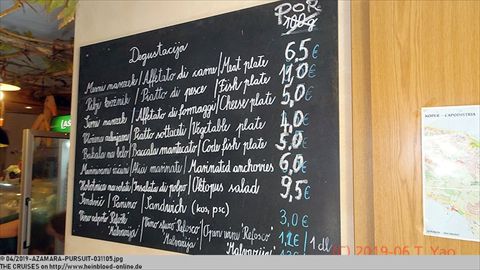 POR
100g
Degustacija
Mesni narezek / Affetato di carne / Meat plate 6,5 €
Ribji krožnik / Piatto di pesce / Fish plate 11,0 €
Sirni narezek / Affetato di formaggi / Cheese plate 5,0 €
Piatto sottaceti / Vegetable plate 4,0 €
Bakala na belo / Baccala mantecato / Code fish plate 5,0 €
Misia marinati / Marinated anchovies 6,0 €
Hobotnica na solato / Insalata di polpo / Oktopus salad 9,5 €
Sendvič / Panino / Sandwich (kos, psc) 3,0 €
Vino odprto Refošk / Vino sfuso Refosco / Open wine "Refosco" 1,2 € / 1 dl
"Malvazija" / Malvasija / "Malvasija"
KOPER - CAPODISTRIA
LAŠ
(C) 2019-06 T. Yao
@ 06/2019-AZAMARA-PURSUIT-031105.jpg
THE CRUISES on http://www.heinbloed-online.de